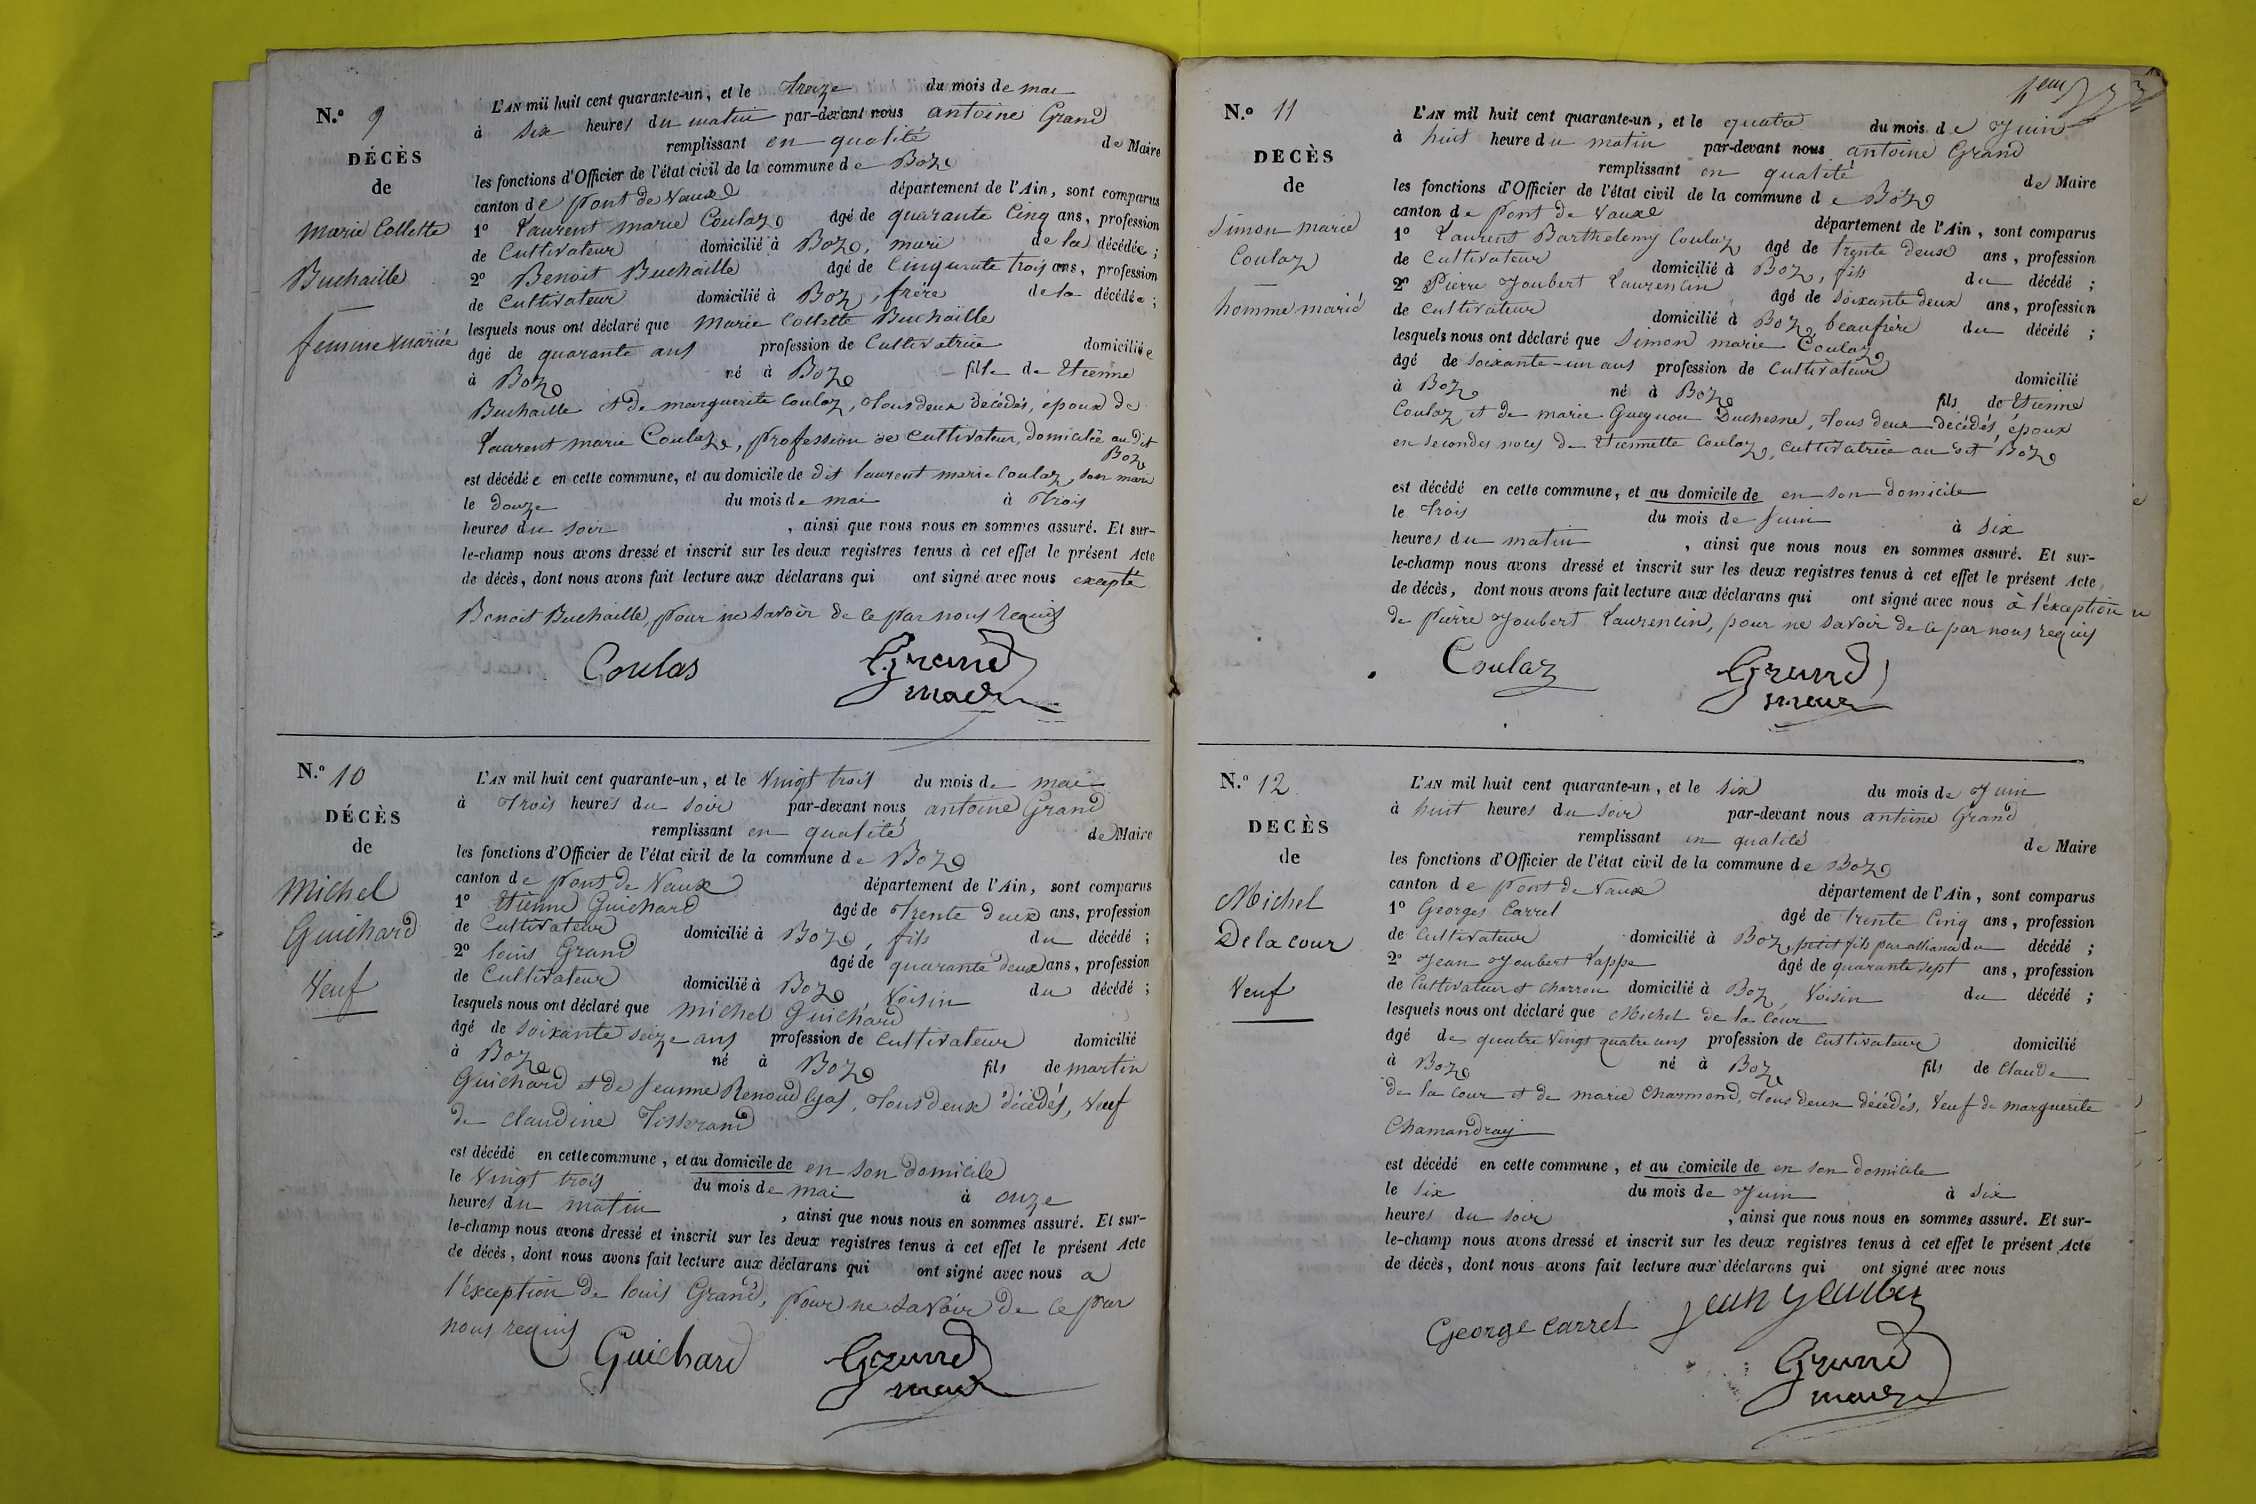 N.º 9
DÉCÈS
de
Marie Collette
Buchaille
femme mariée
L'AN mil huit cent quarante-un, et le treize du mois de mai
à six heures du matin par-devant nous antoine Grand
remplissant en qualité de Maire
les fonctions d'Officier de l'état civil de la commune de Boz
canton de pont de Vaux département de l'Ain, sont comparus
1º Laurent marie Coulaz âgé de quarante cinq ans, profession
de Cultivateur domicilié à Boz, mari de la décédée ;
2º Benoit Buchaille âgé de Cinquante trois ans, profession
de Cultivateur domicilié à Boz, frère de la décédée ;
lesquels nous ont déclaré que Marie Collette Buchaille
âgé de quarante ans profession de Cultivatrice domiciliée
à Boz né à Boz fille de Etienne
Buchaille et de marguerite Coulaz, tous deux décédés, épouse de
Laurent marie Coulaz, profession de cultivateur, domiciliée au dit
Boz
est décédée en cette commune, et au domicile de dit laurent marie Coulaz, son mari
le douze du mois de mai à trois
heures du soir, ainsi que nous nous en sommes assuré. Et sur-
le-champ nous avons dressé et inscrit sur les deux registres tenus à cet effet le présent Acte
de décès, dont nous avons fait lecture aux déclarans qui ont signé avec nous excepté
Benoit Buchaille, pour ne savoir de ce par nous requis
Coulas Grand
maire
N.º 10
DÉCÈS
de
Michel
Guichard
Veuf
L'AN mil huit cent quarante-un, et le Vingt trois du mois de mai
à trois heures du soir par-devant nous antoine Grand
remplissant en qualité de Maire
les fonctions d'Officier de l'état civil de la commune de Boz
canton de pont de Vaux département de l'Ain, sont comparus
1º Etienne Guichard âgé de trente deux ans, profession
de Cultivateur domicilié à Boz, fils du décédé ;
2º louis Grand âgé de quarante deux ans, profession
de Cultivateur domicilié à Boz, Voisin du décédé ;
lesquels nous ont déclaré que Michel Guichard
âgé de soixante seize ans profession de Cultivateur domicilié
à Boz né à Boz fils de martin
Guichard et de Jeanne Renoud lyas, tous deux décédés, Veuf
de Claudine Tisserand
est décédé en cette commune, et au domicile de en son domicile
le Vingt trois du mois de mai à onze
heures du matin, ainsi que nous nous en sommes assuré. Et sur-
le-champ nous avons dressé et inscrit sur les deux registres tenus à cet effet le présent Acte
de décès, dont nous avons fait lecture aux déclarans qui ont signé avec nous a
l'exception de louis Grand, pour ne savoir de ce par
nous requis
Guichard Grand
maire
N.º 11
DECÈS
de
Simon marie
Coulaz
homme marié
L'AN mil huit cent quarante-un, et le quatre du mois de Juin
à huit heure du matin par-devant nous antoine Grand
remplissant en qualité de Maire
les fonctions d'Officier de l'état civil de la commune de Boz
canton de pont de Vaux département de l'Ain, sont comparus
1º Laurent Barthelemy Coulaz âgé de trente deux ans, profession
de Cultivateur domicilié à Boz, fils du décédé ;
2º Pierre Joubert Laurencin âgé de soixante deux ans, profession
de Cultivateur domicilié à Boz beaufrère du décédé ;
lesquels nous ont déclaré que Simon marie Coulaz
âgé de soixante-un ans profession de Cultivateur domicilié
à Boz né à Boz fils de Etienne
Coulaz et de marie Gueynon Duchesne, tous deux décédés, époux
en secondes noces de Etiennette Coulaz, cultivatrice au dit Boz
est décédé en cette commune, et au domicile de en son domicile
le trois du mois de Juin à six
heures du matin, ainsi que nous nous en sommes assuré. Et sur-
le-champ nous avons dressé et inscrit sur les deux registres tenus à cet effet le présent Acte
de décès, dont nous avons fait lecture aux déclarans qui ont signé avec nous à l'exception
de pierre Joubert Laurencin, pour ne savoir de ce par nous requis
Coulaz Grand
maire
N.º 12
DECÈS
de
Michel
De la cour
Veuf
L'AN mil huit cent quarante-un, et le six du mois de Juin
à huit heures du soir par-devant nous antoine Grand
remplissant en qualité de Maire
les fonctions d'Officier de l'état civil de la commune de Boz
canton de pont de Vaux département de l'Ain, sont comparus
1º Georges Carrel âgé de trente Cinq ans, profession
de Cultivateur domicilié à Boz, petit fils par alliance du décédé ;
2º Jean Joubert Lappe âgé de quarante sept ans, profession
de Cultivateur et charron domicilié à Boz, Voisin du décédé ;
lesquels nous ont déclaré que Michel de la Cour
âgé de quatre Vingt quatre ans profession de Cultivateur domicilié
à Boz né à Boz fils de Claude
de la Cour et de marie Charmond, tous deux décédés, Veuf de marguerite
Chamandray
est décédé en cette commune, et au domicile de en son domicile
le six du mois de Juin à six
heures du soir, ainsi que nous nous en sommes assuré. Et sur-
le-champ nous avons dressé et inscrit sur les deux registres tenus à cet effet le présent Acte
de décès, dont nous avons fait lecture aux déclarans qui ont signé avec nous
George Carrel Jean
Grand
maire